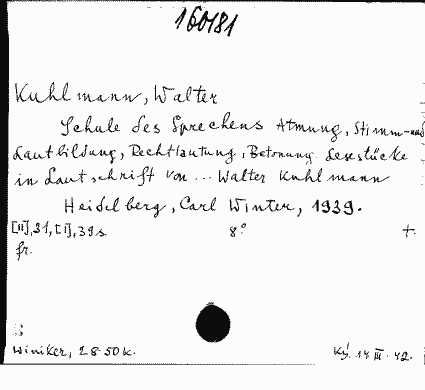 160181
Kuhlmann, Walter
Schule des Sprechens Atmung, Stimm-und
Lautbildung, Rechtlautung, Betonung Lesestücke
in Lautschrift von ... Walter Kuhlmann
Heidelberg, Carl Winter, 1939.
[II], 31, [I], 39 s. 8° +.
fr.
Winiker, 28.50 K. Ký. 14 III. 42.